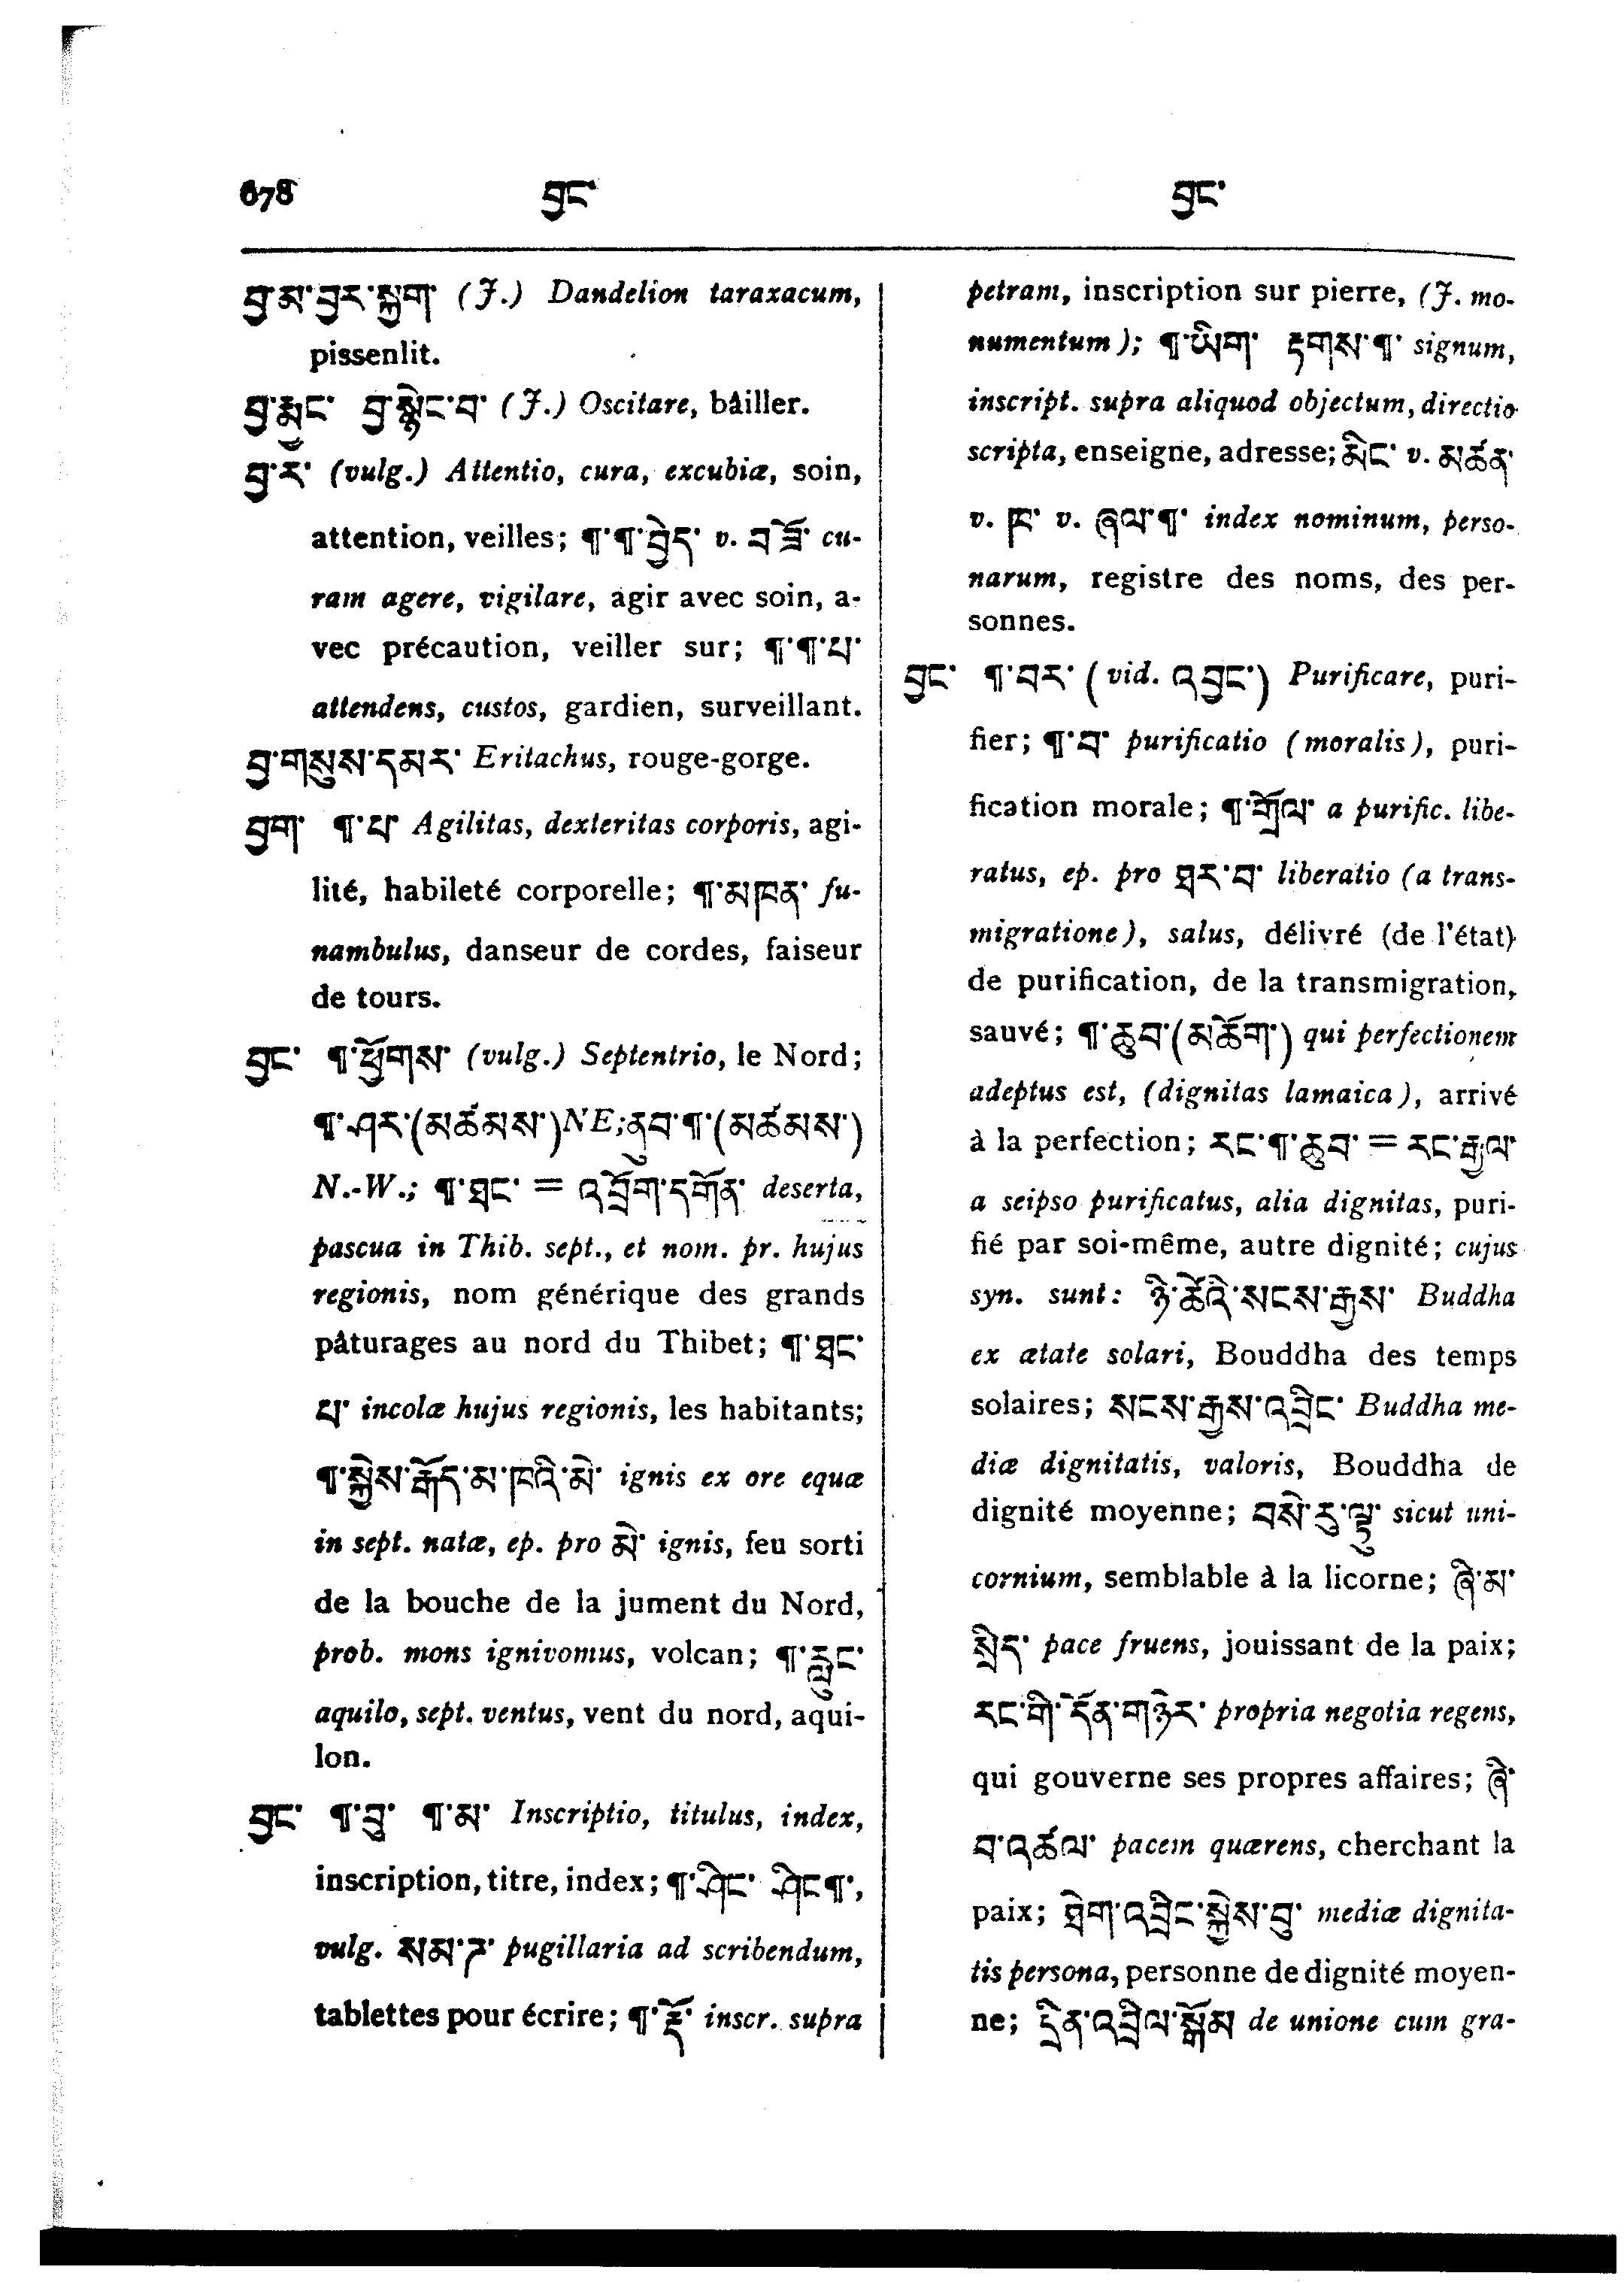 678 བྱང་ བྱང་
བྱ་མ་བྱར་སྐྱག་ (J.) Dandelion taraxacum,
pissenlit.
བྱ་རྨང་ བྱ་སྙེང་བ་ (J.) Oscitare, bâiller.
བྱ་ར་ (vulg.) Attentio, cura, excubiæ, soin,
attention, veilles; ¶་¶་བྱེད་ v. བཟོ་ cu-
ram agere, vigilare, agir avec soin, a-
vec précaution, veiller sur; ¶་¶་པ་
attendens, custos, gardien, surveillant.
བྱ་གསུས་དམར་ Eritachus, rouge-gorge.
བྱག་ ¶་པ་ Agilitas, dexteritas corporis, agi-
lité, habileté corporelle; ¶་མཁན་ fu-
nambulus, danseur de cordes, faiseur
de tours.
བྱང་ ¶་ཕྱོགས་ (vulg.) Septentrio, le Nord;
¶་ཤར་(མཚམས་) NE; ནུབ་¶་(མཚམས་)
N.-W.; ¶་ཐང་ = འབྲོག་དགོན་ deserta,
pascua in Thib. sept., et nom. pr. hujus
regionis, nom générique des grands
pâturages au nord du Thibet; ¶་ཐང་
པ་ incolæ hujus regionis, les habitants;
¶་སྐྱེས་རྒོད་མ་ཁའི་མེ་ ignis ex ore equæ
in sept. natæ, ep. pro མེ་ ignis, feu sorti
de la bouche de la jument du Nord,
prob. mons ignivomus, volcan; ¶་རླུང་
aquilo, sept. ventus, vent du nord, aqui-
lon.
བྱང་ ¶་བུ་ ¶་མ་ Inscriptio, titulus, index,
inscription, titre, index; ¶་ཤིང་ ཤིང་¶་,
vulg. སམ་ཊ་ pugillaria ad scribendum,
tablettes pour écrire; ¶་རྡོ་ inscr. supra
petram, inscription sur pierre, (J. mo-
numentum); ¶་ཡིག་ རྟགས་¶་ signum,
inscript. supra aliquod objectum, directio
scripta, enseigne, adresse; མིང་ v. མཚན་
v. ཁ་ v. ཞལ་¶་ index nominum, perso-
narum, registre des noms, des per-
sonnes.
བྱང་ ¶་བར་ (vid. འབྱང་) Purificare, puri-
fier; ¶་བ་ purificatio (moralis), puri-
fication morale; ¶་གྲོལ་ a purific. libe-
ratus, ep. pro ཐར་བ་ liberatio (a trans-
migratione), salus, délivré (de l'état)
de purification, de la transmigration,
sauvé; ¶་ཆུབ་(མཆོག་) qui perfectionem
adeptus est, (dignitas lamaica), arrivé
à la perfection; རང་¶་ཆུབ་ = རང་རྒྱལ་
a seipso purificatus, alia dignitas, puri-
fié par soi-même, autre dignité; cujus
syn. sunt: ཉི་ཚེའི་སངས་རྒྱས་ Buddha
ex ætate solari, Bouddha des temps
solaires; སངས་རྒྱས་འབྲིང་ Buddha me-
diæ dignitatis, valoris, Bouddha de
dignité moyenne; བསེ་རུ་ལྟ་ sicut uni-
cornium, semblable à la licorne; ཞི་མ་
སྲིད་ pace fruens, jouissant de la paix;
རང་གི་དོན་གཉེར་ propria negotia regens,
qui gouverne ses propres affaires; ཞི་
བ་འཚལ་ pacem quærens, cherchant la
paix; ཐེག་འབྲིང་སྐྱེས་བུ་ mediæ dignita-
tis persona, personne de dignité moyen-
ne; དྲིན་འབྲེལ་སྒོམ་ de unione cum gra-